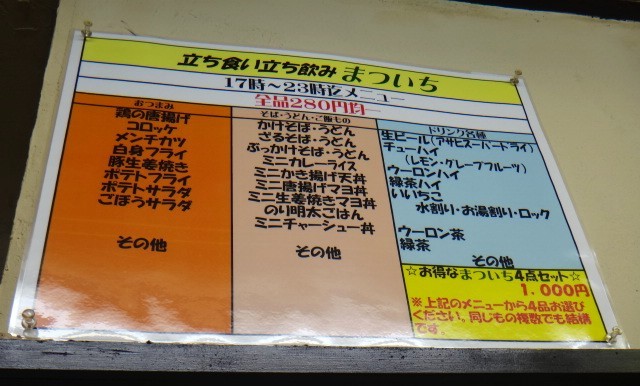 立ち食い立ち飲み まついち
17時～23時迄メニュー
全品280円均一
おつまみ
鶏の唐揚げ
コロッケ
メンチカツ
白身フライ
豚生姜焼き
ポテトフライ
ポテトサラダ
ごぼうサラダ
その他
そば・うどん・ご飯もの
かけそば・うどん
ざるそば・うどん
ぶっかけそば・うどん
ミニカレーライス
ミニかき揚げ天丼
ミニ唐揚げマヨ丼
ミニ生姜焼きマヨ丼
のり明太ごはん
ミニチャーシュー丼
その他
ドリンク各種
生ビール(アサヒスーパードライ)
チューハイ
(レモン・グレープフルーツ)
ウーロンハイ
緑茶ハイ
いいちこ
水割り・お湯割り・ロック
ウーロン茶
緑茶
その他
☆お得なまついち4点セット☆
1.000円
※上記のメニューから4品お選び
ください。同じもの複数でも結構
です。